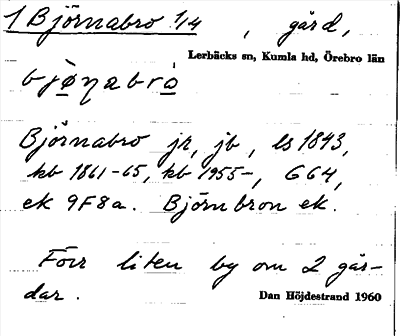 1 Björnabro 1/4, gård,
Lerbäcks sn, Kumla hd, Örebro län
Björnabro jr, jb, ls 1843,
kb 1861-65, kb 1955-, G64,
ek 9F8a. Björnbron ek.
Förr liten by om 2 går-
dar.
Dan Höjdestrand 1960